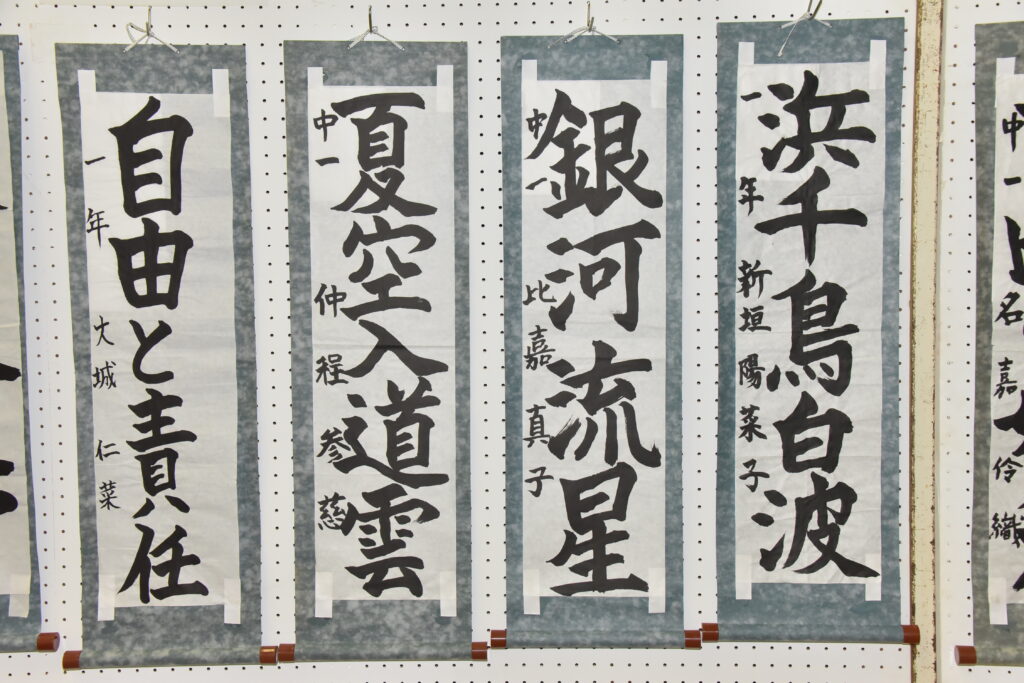 中一 名嘉伶織
浜千鳥白波
一年 新垣陽菜子
銀河流星
中一 比嘉真子
夏空入道雲
中一 仲程参慈
自由と責任
一年 大城仁菜